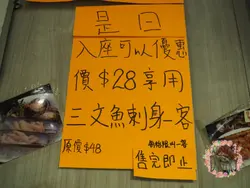 是日
入座可以優惠
價$28享用
三文魚刺身一客
原價$48
售完即止